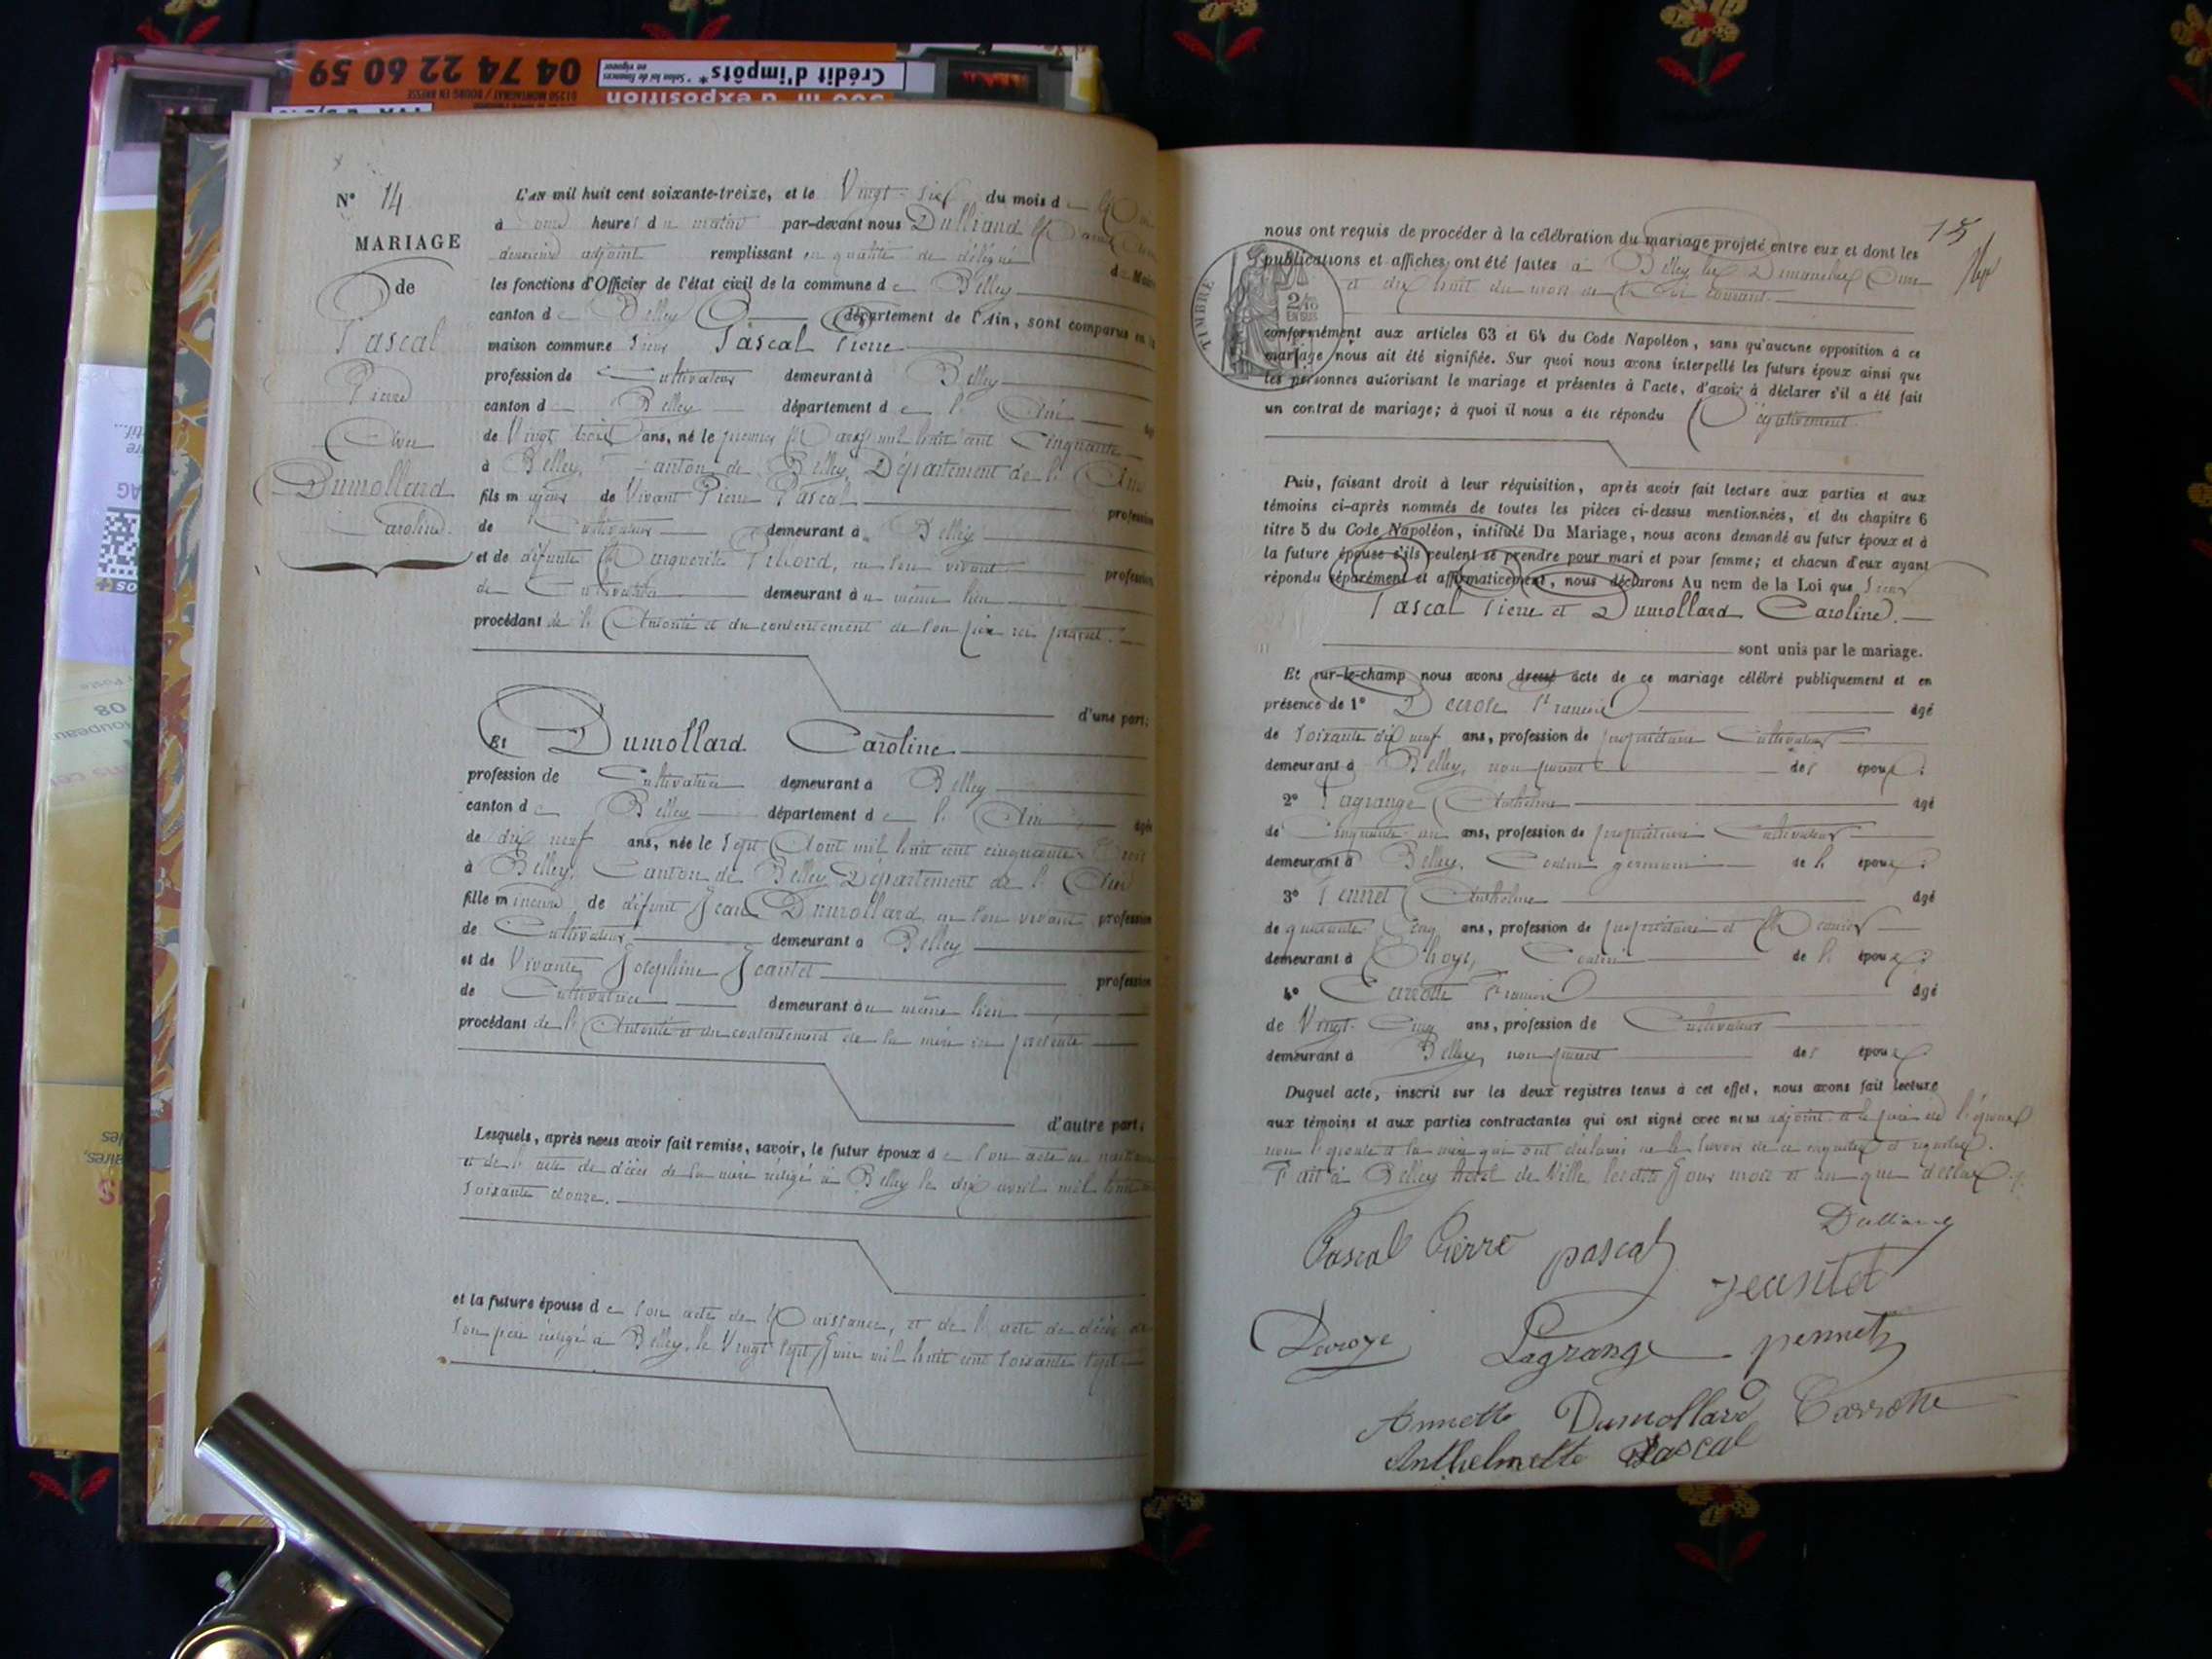 04 74 22 60 59
01250 MONTAGNAT / BOURG EN BRESSE
Crédit d'impôts*
* Selon loi de finances
en vigueur
d'exposition
N° 14
MARIAGE
de
Pascal
Pierre
Avec
Dumollard
Caroline.
L'AN mil huit cent soixante-treize, et le Vingt-six du mois de
à onze heures du matin par-devant nous Dulliand
deuxième adjoint remplissant en qualité de délégué du Maire
les fonctions d'Officier de l'état civil de la commune de Belley
canton de Belley département de l'Ain, sont comparus en la
maison commune Sieur Pascal Pierre
profession de Cultivateur demeurant à Belley
canton de Belley département de l'Ain
de Vingt trois ans, né le premier Mars mil huit cent Cinquante
à Belley, Canton de Belley, Département de l'Ain
fils majeur de Vivant Pierre Pascal profession
de Cultivateur demeurant à Belley
et de défunte Marguerite en son vivant profession
de Cultivatrice demeurant au même lieu
procédant de l'Autorité et du consentement de son père ici présent.
d'une part;
Et Dumollard Caroline
profession de Cultivatrice demeurant à Belley
canton de Belley département de l'Ain âgée
de dix neuf ans, née le Sept Août mil huit cent cinquante trois
à Belley, Canton de Belley, Département de l'Ain
fille mineure de défunt Jean Dumollard, en son vivant profession
de Cultivateur demeurant à Belley
et de Vivante Joséphine Jeantet profession
de Cultivatrice demeurant au même lieu
procédant de l'Autorité et du consentement de la mère ici présente
d'autre part;
Lesquels, après nous avoir fait remise, savoir, le futur époux de son acte de
et de l'acte de décès de sa mère rédigé à Belley le dix avril mil huit
Soixante douze.
et la future épouse de son acte de Naissance, et de l'acte de décès de
Son père rédigé à Belley, le Vingt Sept Juin mil huit cent Soixante Sept
15
TIMBRE
2/10
EN SUS
nous ont requis de procéder à la célébration du mariage projeté entre eux et dont les
publications et affiches ont été faites à Belley les Dimanches Onze
et dix huit du mois de Mai courant.
conformément aux articles 63 et 64 du Code Napoléon, sans qu'aucune opposition à ce
mariage nous ait été signifiée. Sur quoi nous avons interpellé les futurs époux ainsi que
les personnes autorisant le mariage et présentes à l'acte, d'avoir à déclarer s'il a été fait
un contrat de mariage; à quoi il nous a été répondu Négativement.
Puis, faisant droit à leur réquisition, après avoir fait lecture aux parties et aux
témoins ci-après nommés de toutes les pièces ci-dessus mentionnées, et du chapitre 6
titre 5 du Code Napoléon, intitulé Du Mariage, nous avons demandé au futur époux et à
la future épouse s'ils veulent se prendre pour mari et pour femme; et chacun d'eux ayant
répondu séparément et affirmativement, nous déclarons Au nom de la Loi que Sieur
Pascal Pierre et Dumollard Caroline.
sont unis par le mariage.
Et sur-le-champ nous avons dressé acte de ce mariage célébré publiquement et en
présence de 1° François âgé
de Soixante dix neuf ans, profession de propriétaire Cultivateur
demeurant à Belley, non parent des époux;
2° Lagrange Anthelme âgé
de Cinquante un ans, profession de propriétaire Cultivateur
demeurant à Belley, Cousin germain de l'époux;
3° Pennet Anthelme âgé
de quarante Cinq ans, profession de propriétaire et Meunier
demeurant à Cousin de l'époux;
4° Carrotte François âgé
de Vingt-Cinq ans, profession de Cultivateur
demeurant à Belley, non parent des époux
Duquel acte, inscrit sur les deux registres tenus à cet effet, nous avons fait lecture
aux témoins et aux parties contractantes qui ont signé avec nous adjoint et le père de l'époux
non l'épouse et la mère qui ont déclaré ne le savoir de ce enquises et requises.
Fait à Belley hôtel de Ville, lesdits Jour mois et an que dessus.
Dulliand
Pascal Pierre pascal
Jeantet
Lagrange pennet
Annette Dumollard Carrotte
Anthelmette Pascal